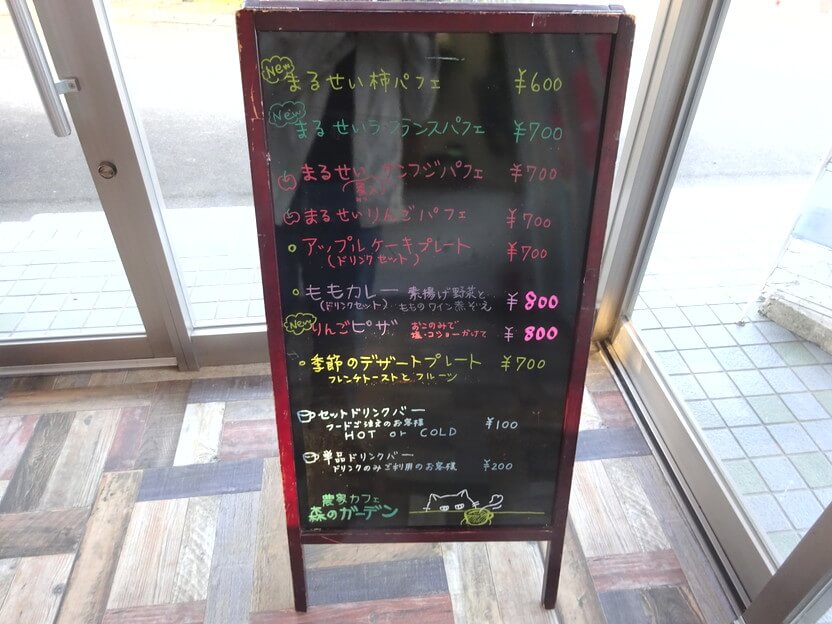 New
まるせい柿パフェ ¥600
New
まるせいラ・フランスパフェ ¥700
まるせいサンフジパフェ ¥700
まるせいりんごパフェ ¥700
アップルケーキプレート ¥700
(ドリンクセット)
ももカレー 素揚げ野菜と ¥800
(ドリンクセット) もものワイン蒸ぞえ
New
りんごピザ おこのみで ¥800
塩・コショーかけて
季節のデザートプレート ¥700
フレンチトーストとフルーツ
セットドリンクバー ¥100
フードご注文のお客様
HOT or COLD
単品ドリンクバー ¥200
ドリンクのみご利用のお客様
農家カフェ
森のガーデン